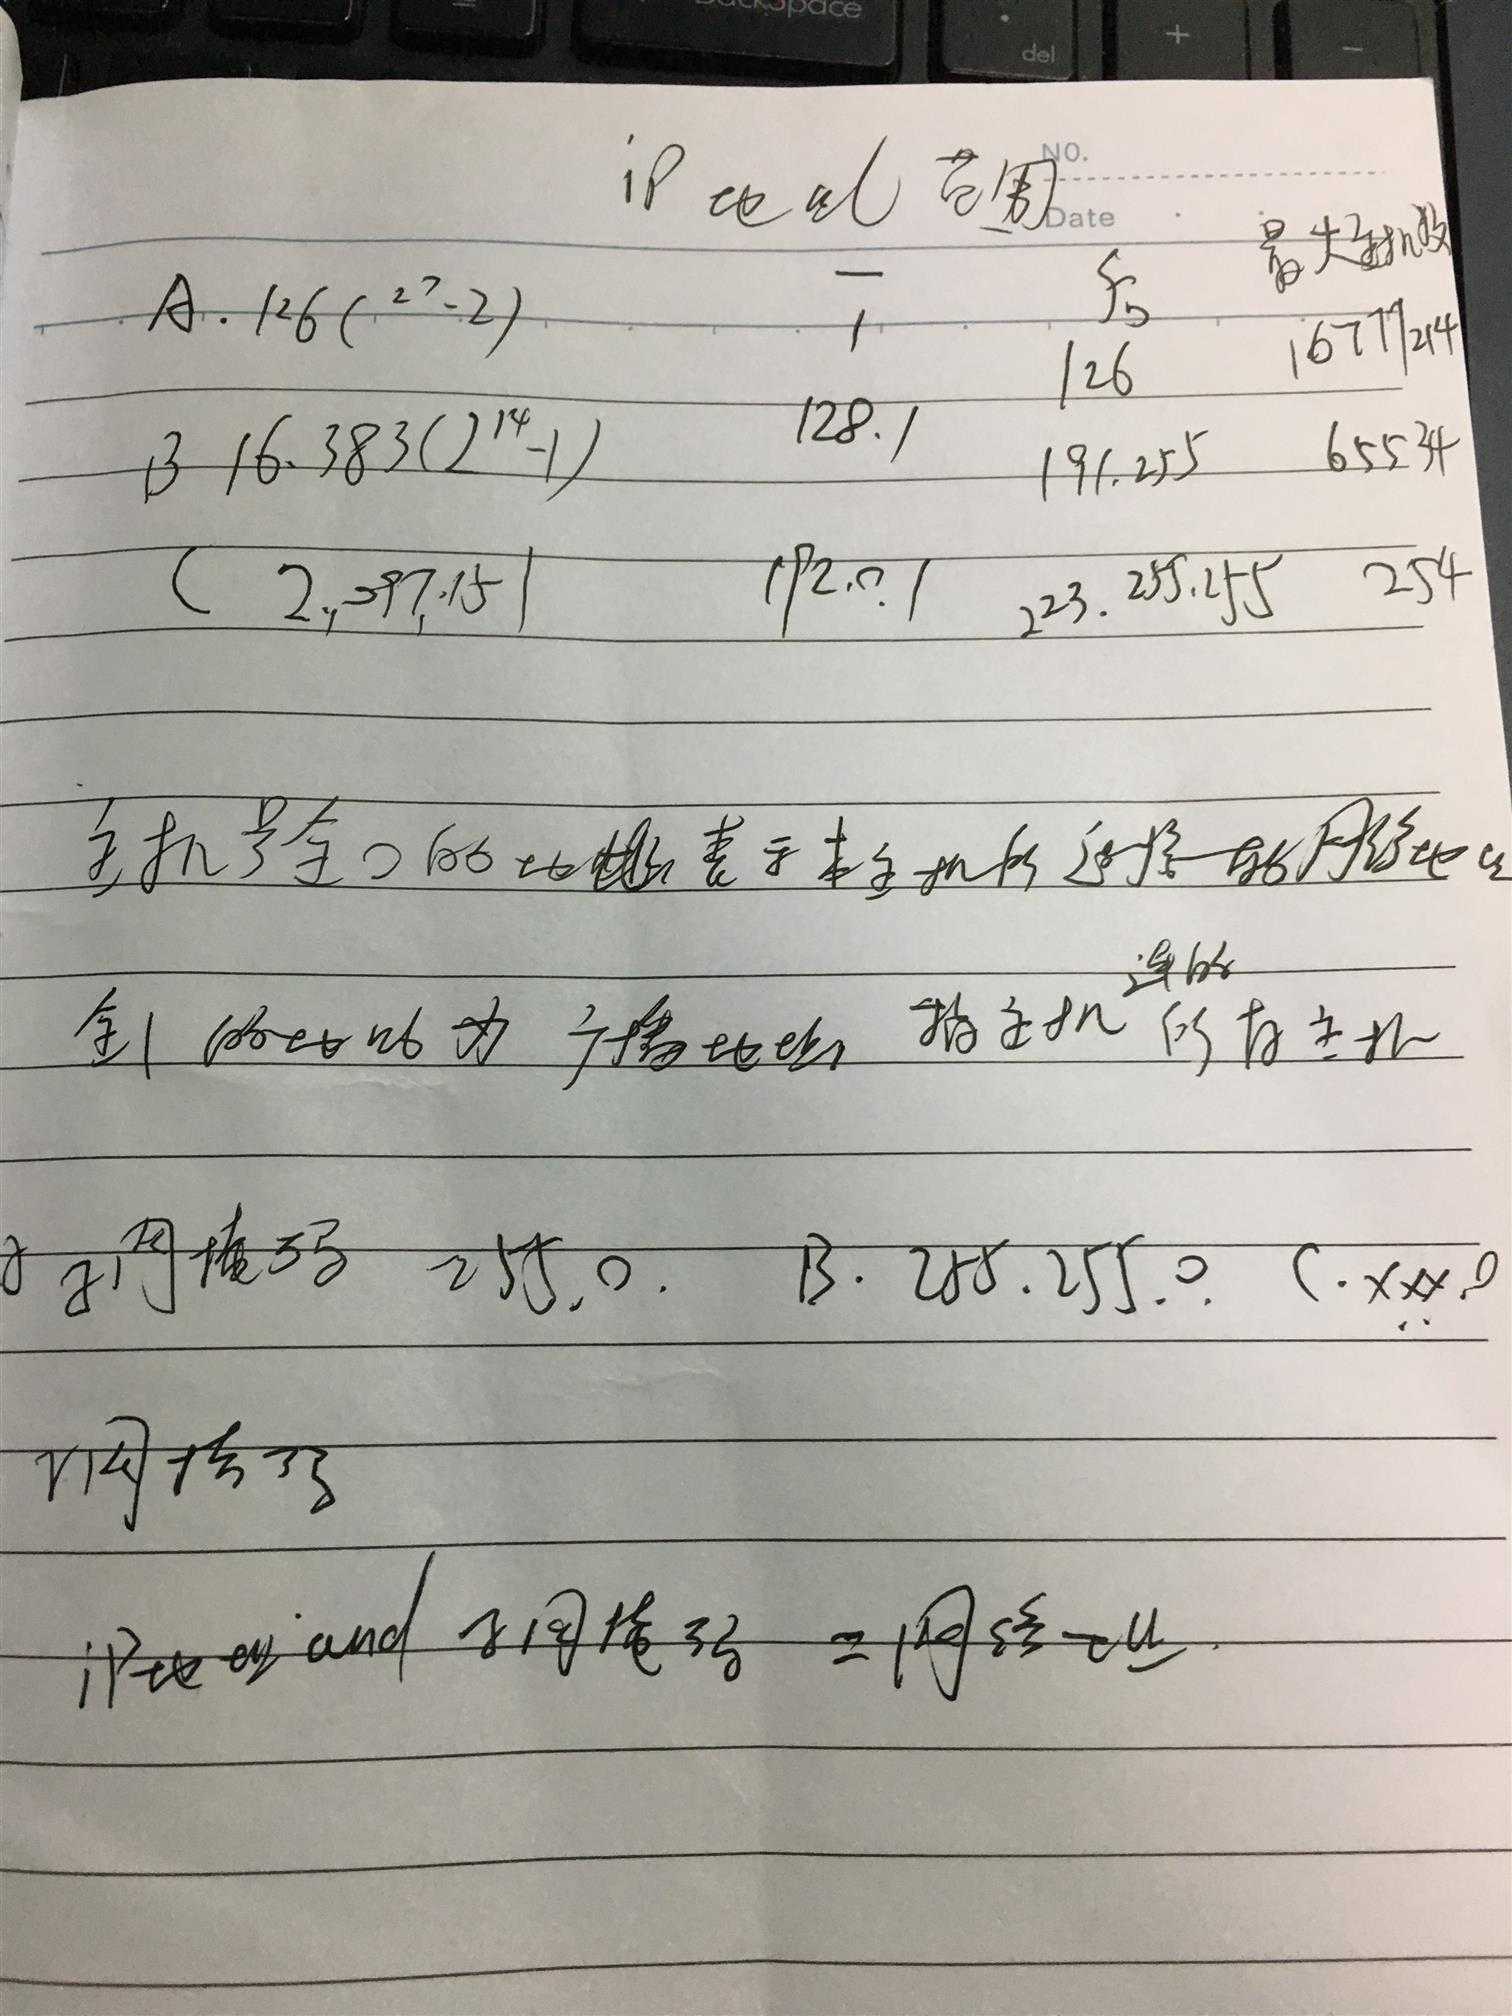 BackSpace
del
+
-
NO.
Date
iP 地址范围
一 后 最大主机数
A. 126 (2⁷-2) 1 126 16777214
B 16.383 (2¹⁴-1) 128.1 191.255 65534
C 2,097,151 192.0.1 223.255.255 254
主机号全0的地址表示本主机所连接的网络地址
连的
全1的地址为广播地址 指主机 所有主机
子网掩码 255.0. B. 255.255.0 C. xxx.0
子网掩码
iP地址 and 子网掩码 = 网络地址.